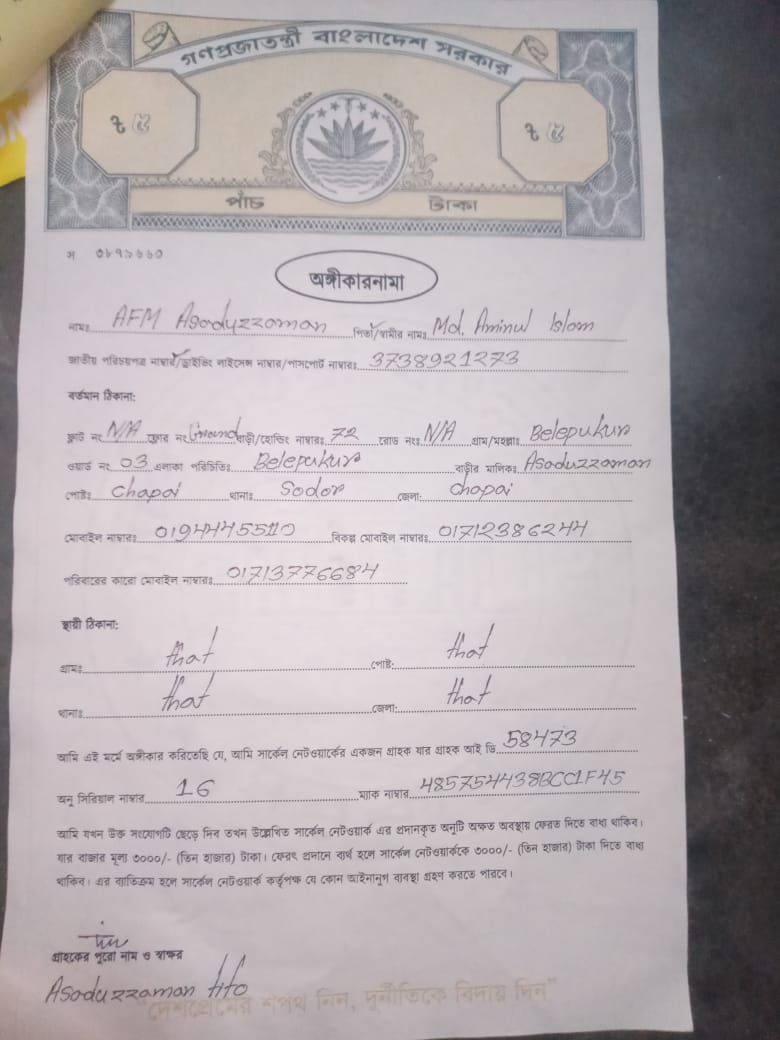 গণপ্রজাতন্ত্রী বাংলাদেশ সরকার
৳ ৫ ৳ ৫
পাঁচ টাকা
৩৮৭১৬৬০
অঙ্গীকারনামা
নামঃ AFM Asaduzzaman পিতা/স্বামীর নামঃ Md. Aminul Islam
জাতীয় পরিচয়পত্র নাম্বার/ড্রাইভিং লাইসেন্স নাম্বার/পাসপোর্ট নাম্বারঃ 3738921273
বর্তমান ঠিকানা:
ফ্লাট নং N/A ফ্লোর নং Ground বাড়ী/হোল্ডিং নাম্বারঃ 72 রোড নংঃ N/A গ্রাম/মহল্লাঃ Belepukur
ওয়ার্ড নং 03 এলাকা পরিচিতিঃ Belepukur বাড়ীর মালিকঃ Asaduzzaman
পোষ্টঃ Chapai থানাঃ Sador জেলা: Chapai
মোবাইল নাম্বারঃ বিকল্প মোবাইল নাম্বারঃ 01712386244
পরিবারের কারো মোবাইল নাম্বারঃ 01713776684
স্থায়ী ঠিকানা:
গ্রামঃ that পোষ্ট: that
থানাঃ that জেলা: that
আমি এই মর্মে অঙ্গীকার করিতেছি যে, আমি সার্কেল নেটওয়ার্কের একজন গ্রাহক যার গ্রাহক আই ডি 58473
অনু সিরিয়াল নাম্বার 16 ম্যাক নাম্বার 485754438BCC1F45
আমি যখন উক্ত সংযোগটি ছেড়ে দিব তখন উল্লেখিত সার্কেল নেটওয়ার্ক এর প্রদানকৃত অনুটি অক্ষত অবস্থায় ফেরত দিতে বাধ্য থাকিব।
যার বাজার মূল্য ৩০০০/- (তিন হাজার) টাকা। ফেরৎ প্রদানে ব্যর্থ হলে সার্কেল নেটওয়ার্ককে ৩০০০/- (তিন হাজার) টাকা দিতে বাধ্য
থাকিব। এর ব্যতিক্রম হলে সার্কেল নেটওয়ার্ক কর্তৃপক্ষ যে কোন আইনানুগ ব্যবস্থা গ্রহণ করতে পারবে।
গ্রাহকের পুরো নাম ও স্বাক্ষর
Asaduzzaman tito
"দেশপ্রেমের শপথ নিন, দুর্নীতিকে বিদায় দিন"